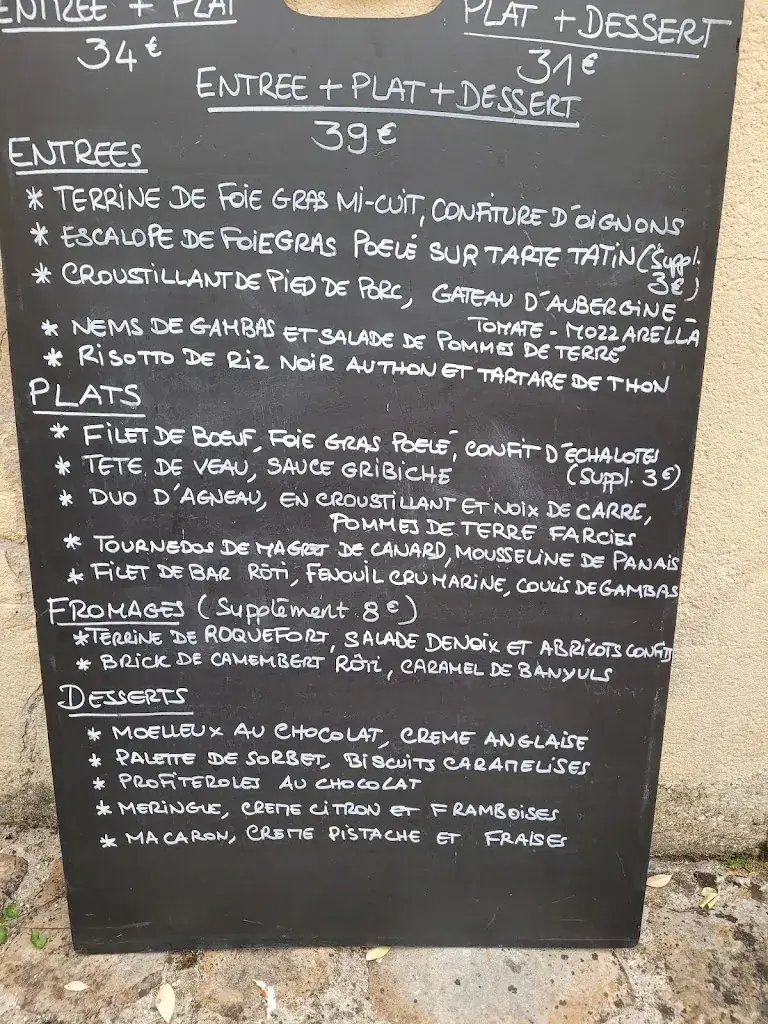 ENTREE + PLAT
34€
PLAT + DESSERT
31€
ENTREE + PLAT + DESSERT
39€
ENTREES
* TERRINE DE FOIE GRAS MI-CUIT, CONFITURE D'OIGNONS
* ESCALOPE DE FOIE GRAS POELÉ SUR TARTE TATIN (Suppl.
3€)
* CROUSTILLANT DE PIED DE PORC, GATEAU D'AUBERGINE -
TOMATE - MOZZARELLA
* NEMS DE GAMBAS ET SALADE DE POMMES DE TERRE
* RISOTTO DE RIZ NOIR AU THON ET TARTARE DE THON
PLATS
* FILET DE BOEUF, FOIE GRAS POELÉ, CONFIT D'ÉCHALOTES
(Suppl. 3€)
* TETE DE VEAU, SAUCE GRIBICHE
* DUO D'AGNEAU, EN CROUSTILLANT ET NOIX DE CARRE,
POMMES DE TERRE FARCIES
* TOURNEDOS DE MAGRET DE CANARD, MOUSSELINE DE PANAIS
* FILET DE BAR RÔTI, FENOUIL CRU MARINE, COULIS DE GAMBAS
FROMAGES (Supplément 8€)
* TERRINE DE ROQUEFORT, SALADE DE NOIX ET ABRICOTS CONFITS
* BRICK DE CAMEMBERT RÔTI, CARAMEL DE BANYULS
DESSERTS
* MOELLEUX AU CHOCOLAT, CREME ANGLAISE
* PALETTE DE SORBET, BISCUITS CARAMELISES
* PROFITEROLES AU CHOCOLAT
* MERINGUE, CREME CITRON ET FRAMBOISES
* MACARON, CREME PISTACHE ET FRAISES